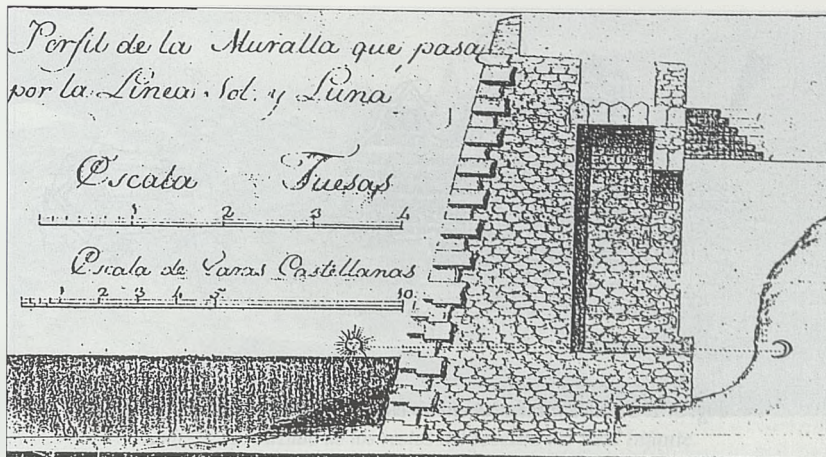 Perfil de la Muralla que pasa
por la Linea Sol. y Luna
Escala Tuesas
1 2 3 4
Escala de Varas Castellanas
1 2 3 4 5 10